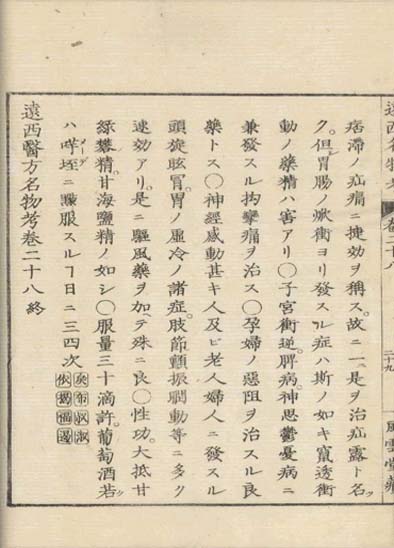 痞滯ノ疝痛ニ捷効ヲ稱ス。故ニ一、是ヲ治疝露ト名
ク。但胃腸ノ焮衝ヨリ發スル症ハ斯ノ如キ竄透衝
動ノ藥精ハ害アリ〇子宮衝逆。脾病。神思鬱憂病ニ
兼發スル拘攣痛ヲ治ス〇孕婦ノ惡阻ヲ治スル良
藥トス〇神經感動甚キ人及ビ老人婦人ニ發スル
頭旋眩冒。胃ノ虛冷ノ諸症。肢節顫振瞤動等ニ多ク
速効アリ。是ニ驅風藥ヲ加ヘテ殊ニ良〇性功。大抵甘
綠礬精。甘海鹽精ノ如シ〇服量三十滴許。葡萄酒若ク
ハ哶垤ニ點服スルヿ日ニ三四次
遠西醫方名物考卷二十八終
遠西名物考
卷二十八
二十九
風雲堂藏